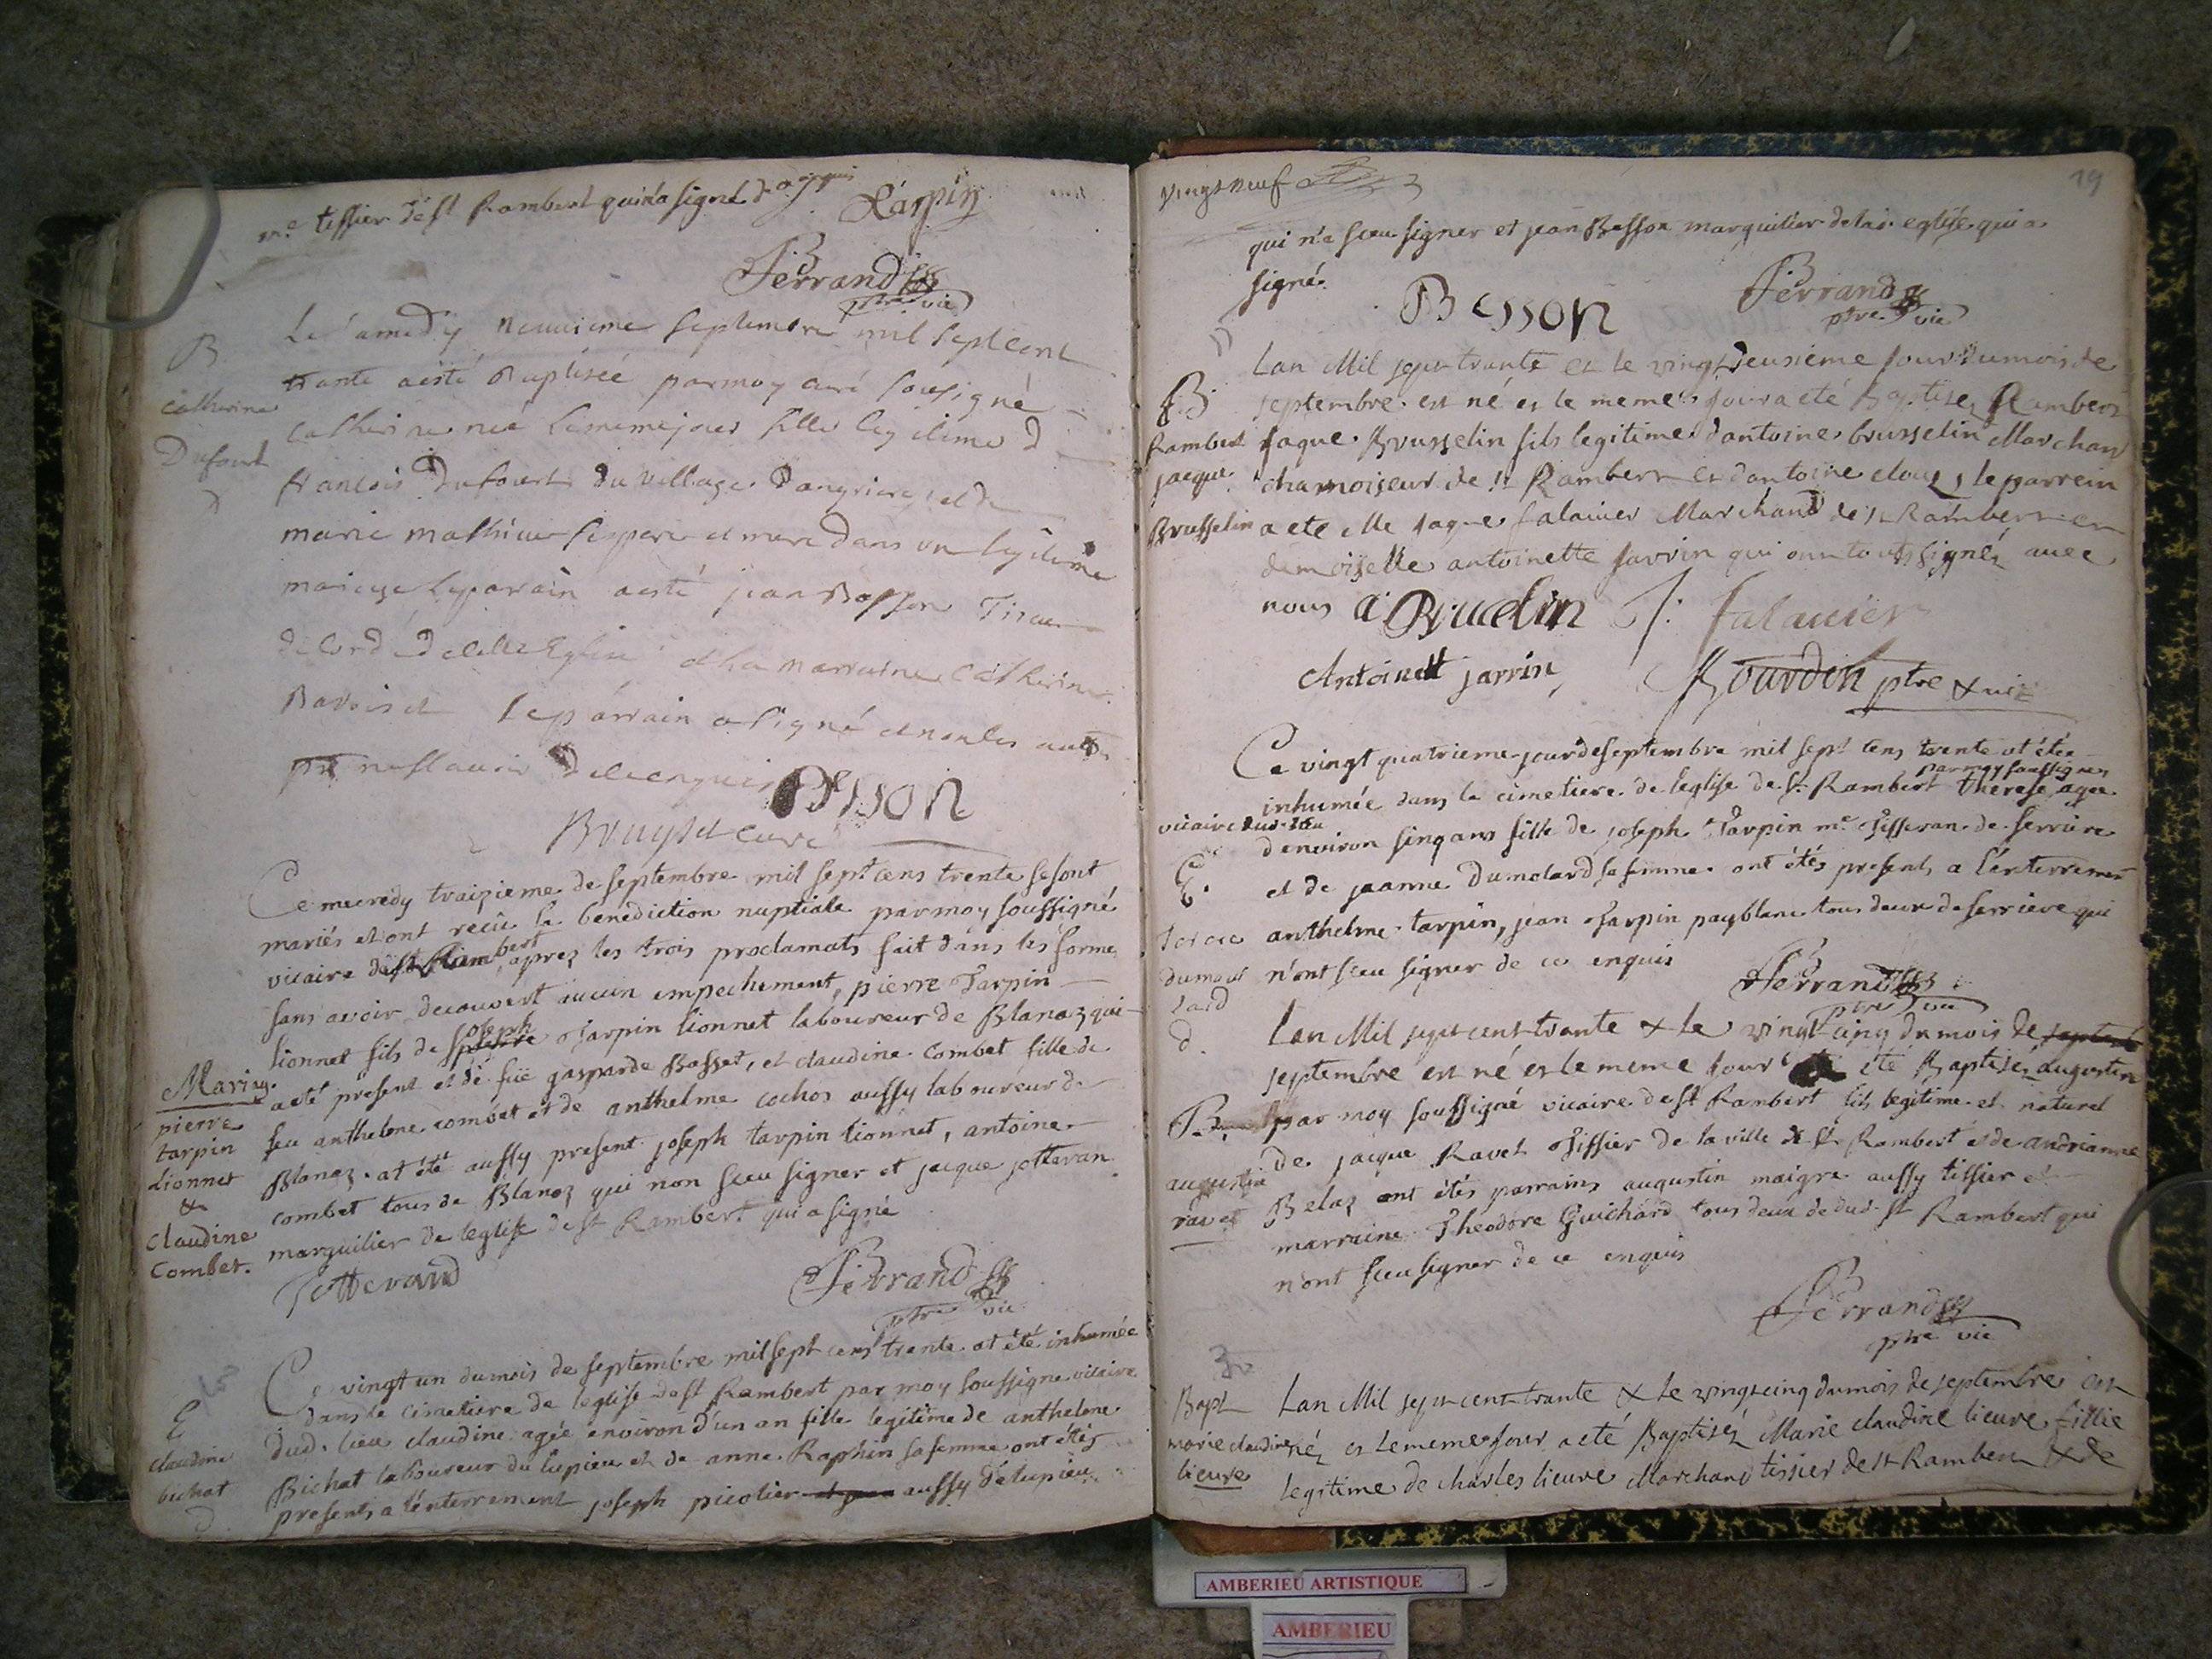 me tissier de st Rambert qui n'a signé de ce enquis
Tarpin
Ferrand
ptre vic
B
Catherine
Dufourt
d
Le samedÿ neuuieme septembre mil sept cent
trante a esté Baptisée par moy curé sousigné
Catherine née le meme jour fille legitime d
francois Dufourt du village d'angrieres et de
marie mathieu ses pere et mere dans un legitime
mariage le parain a esté jean Besson
de lad Eglise et la marraine Catherine
le parrain a signé et non les autres
Besson
Bruyset curé
Mariag.
pierre
tarpin
Lionnet
&
Claudine
Combet.
Ce mecredy traizieme de septembre mil sept cens trente se sont
mariés et ont reçüe la benediction nuptiale par moy soussigné
vicaire de st Rambert aprez les trois proclamats fait dans les formes
sans avoir decouvert aucun empechement, pierre Tarpin
lionnet fils de joseph Tarpin lionnet laboureur de Blanaz qui
a eté present et de füe gasparde Bosset, et claudine Combet fille de
feu anthelme combet et de anthelme cochos aussy laboureur de
Blanaz. at été aussy present joseph tarpin lionnet, antoine
combet tous de Blanaz qui non sceu signer et jacque jotteran
marguilier de leglise de st Rambert qui a signé
Jotterand
Ferrand
ptre vic
E
claudine
bichat
d
Ce vingt un du mois de septembre mil sept cens trente at été inhumée
dans le cimetiere de leglise de st Rambert par moy soussigne vicaire
dud. lieu claudine agée environ d'un an fille legitime de anthelme
Bichat laboureur du lupieu et de anne Raphin sa femme ont étés
presents a lénterrement joseph picolier aussy de lupieu
Vingt neuf
19
qui n'a sceu signer et jean Besson marguilier de lad. eglise qui a
signé.
Besson
Ferrand
ptre vic
B
Rambert
jacque
Brusselin
Lan Mil sept trante et le vingt deusieme jour du mois de
septembre est né et le meme jour a eté Baptisez Rambert
Jaque Brusselin fils legitime d'antoine brusselin Marchan
chamoiseur de st Rambert et d'antoine cloux, le parrein
a ete Me Jaque falauier Marchand de st Rambert et
demoiselle antoinette Jarrin qui ont touts signés auec
nous A Brucelin J: falauier
Antoinett jarrin Bourdin ptre & vic
E.
Terese
dumou
lard
d.
Ce vingt quatrieme jour de septembre mil sept cens trente at étée
par moy soussigner
inhumée dans le cimetiere de leglise de st Rambert therese agee
vicaire dud. lieu
d'environ sinq ans fille de joseph Tarpin me Tisseran de serriere
et de jeanne Dumolard sa femme. ont étés present a l'énterrement
anthelme tarpin, jean Tarpin payblanc tous deux de serriere qui
n'ont sceu signer de ce enquis
Ferrand
ptre vic
B.
augustin
ravet
Lan Mil sept cent trante & le vingt cinq du mois de
septembre est né et le meme jour été Baptisez augustin
par moy soussigné vicaire de st Rambert fils legitime et naturel
de jacque Ravet Tissier de la ville de st Rambert et de andrianne
Belaz ont étés parrains augustin maigre aussy tissier et
marraine Theodore Guichard tous deux de dud. st Rambert qui
n'ont sceu signer de ce enquis
Ferrand
ptre vic
Bapt
marie claudine
lieure
Lan Mil sept cent trante & le vingt cinq du mois de septembre est
néz et le meme jour a eté Baptisez Marie claudine lieure fillie
legitime de charles lieure Marchand tissier de st Rambert & de
AMBERIEU ARTISTIQUE
AMBERIEU